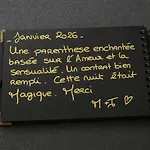 Janvier 2026.
Une parenthèse enchantée
basée sur l'Amour et la
sensualité. Un contant bien
rempli. Cette nuit était
Magique. Merci